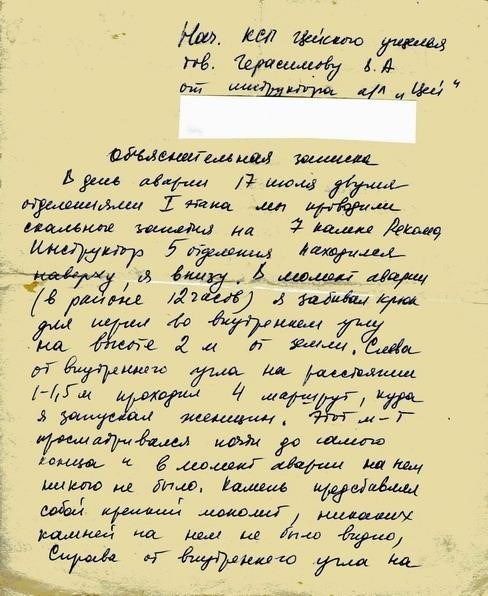 Нач. КСП Цейского ущелья
тов. Герасимову В.А
от инструктора а/л „Цей"
Объяснительная записка
В день аварии 17 июля двумя
отделениями I этапа мы проводили
скальные занятия на 7 камне Рекома.
Инструктор 5 отделения находился
наверху, я внизу. В момент аварии
(в районе 12 часов) я забивал крюк
для перил во внутреннем углу
на высоте 2 м от земли. Слева
от внутреннего угла на расстоянии
1-1,5 м проходил 4 маршрут, куда
я запускал женщин. Этот м-т
просматривался почти до самого
конца и в момент аварии на нем
никого не было. Камень представлял
собой крепкий монолит, никаких
камней на нем не было видно,
Справа от внутреннего угла на